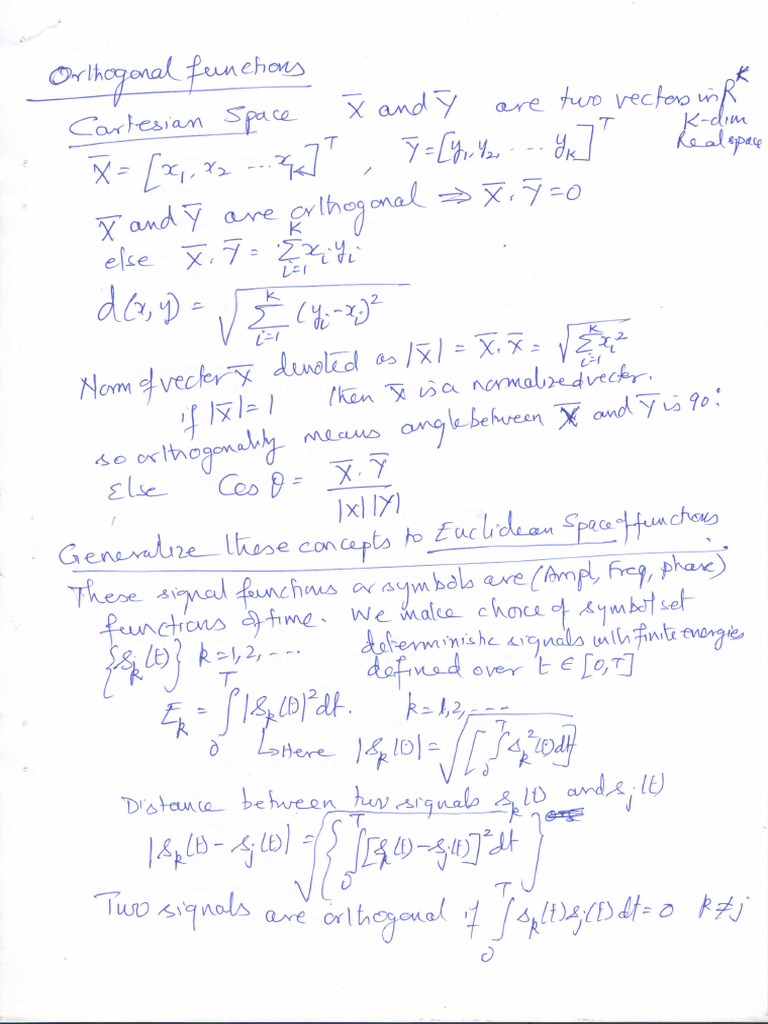 Orthogonal functions
Cartesian Space X̄ and Ȳ are two vectors in R^K
K-dim
Real space
X̄ = [x₁, x₂ ... x_K]^T , Ȳ = [y₁, y₂, ... y_K]^T
X̄ and Ȳ are orthogonal ⇒ X̄. Ȳ = 0
else X̄. Ȳ = ∑_{i=1}^{K} x_i y_i
d(x, y) = √(∑_{i=1}^{K} (y_i - x_i)²)
Norm of vector X̄ denoted as |X̄| = X̄. X̄ = √(∑_{i=1}^{K} x_i²)
if |X̄| = 1 then X̄ is a normalized vector.
so orthogonality means angle between X̄ and Ȳ is 90°
Else Cos θ = X̄. Ȳ / |X||Y|
Generalize these concepts to Euclidean Space of functions.
These signal functions or symbols are (Ampl, Freq, phase)
functions of time. We make choice of symbol set
{s_k(t)} k = 1, 2, ... deterministic signals with finite energies
defined over t ∈ [0, T]
E_k = ∫_0^T |s_k(t)|² dt. k = 1, 2, ...
↳ Here |s_k(t)| = √[∫_0^T s_k²(t) dt]
Distance between two signals s_k(t) and s_j(t)
|s_k(t) - s_j(t)| = √{∫_0^T [s_k(t) - s_j(t)]² dt}
Two signals are orthogonal if ∫_0^T s_k(t) s_j(t) dt = 0 k ≠ j